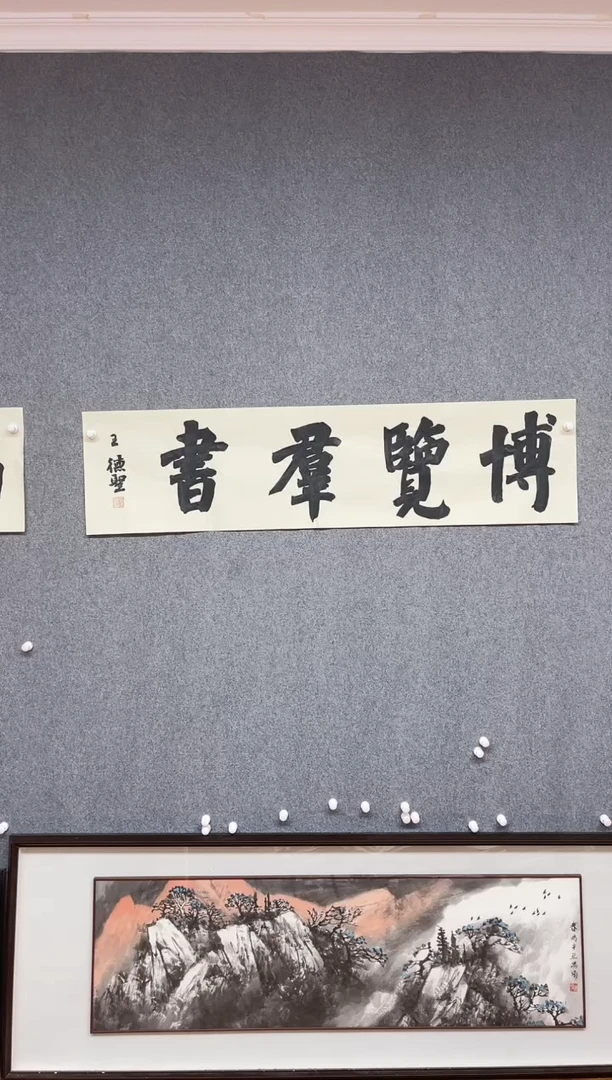 博覽羣書
王德聖